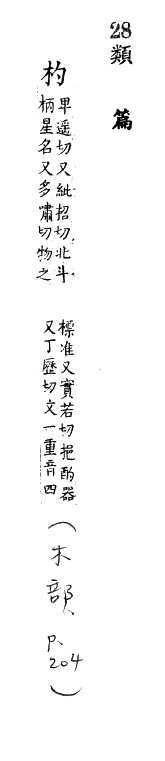 28 類篇
杓
卑遥切又紕招切北斗
柄星名又多嘯切物之
標准又實若切挹酌器
又丁歷切文一重音四
(木部、P.204)